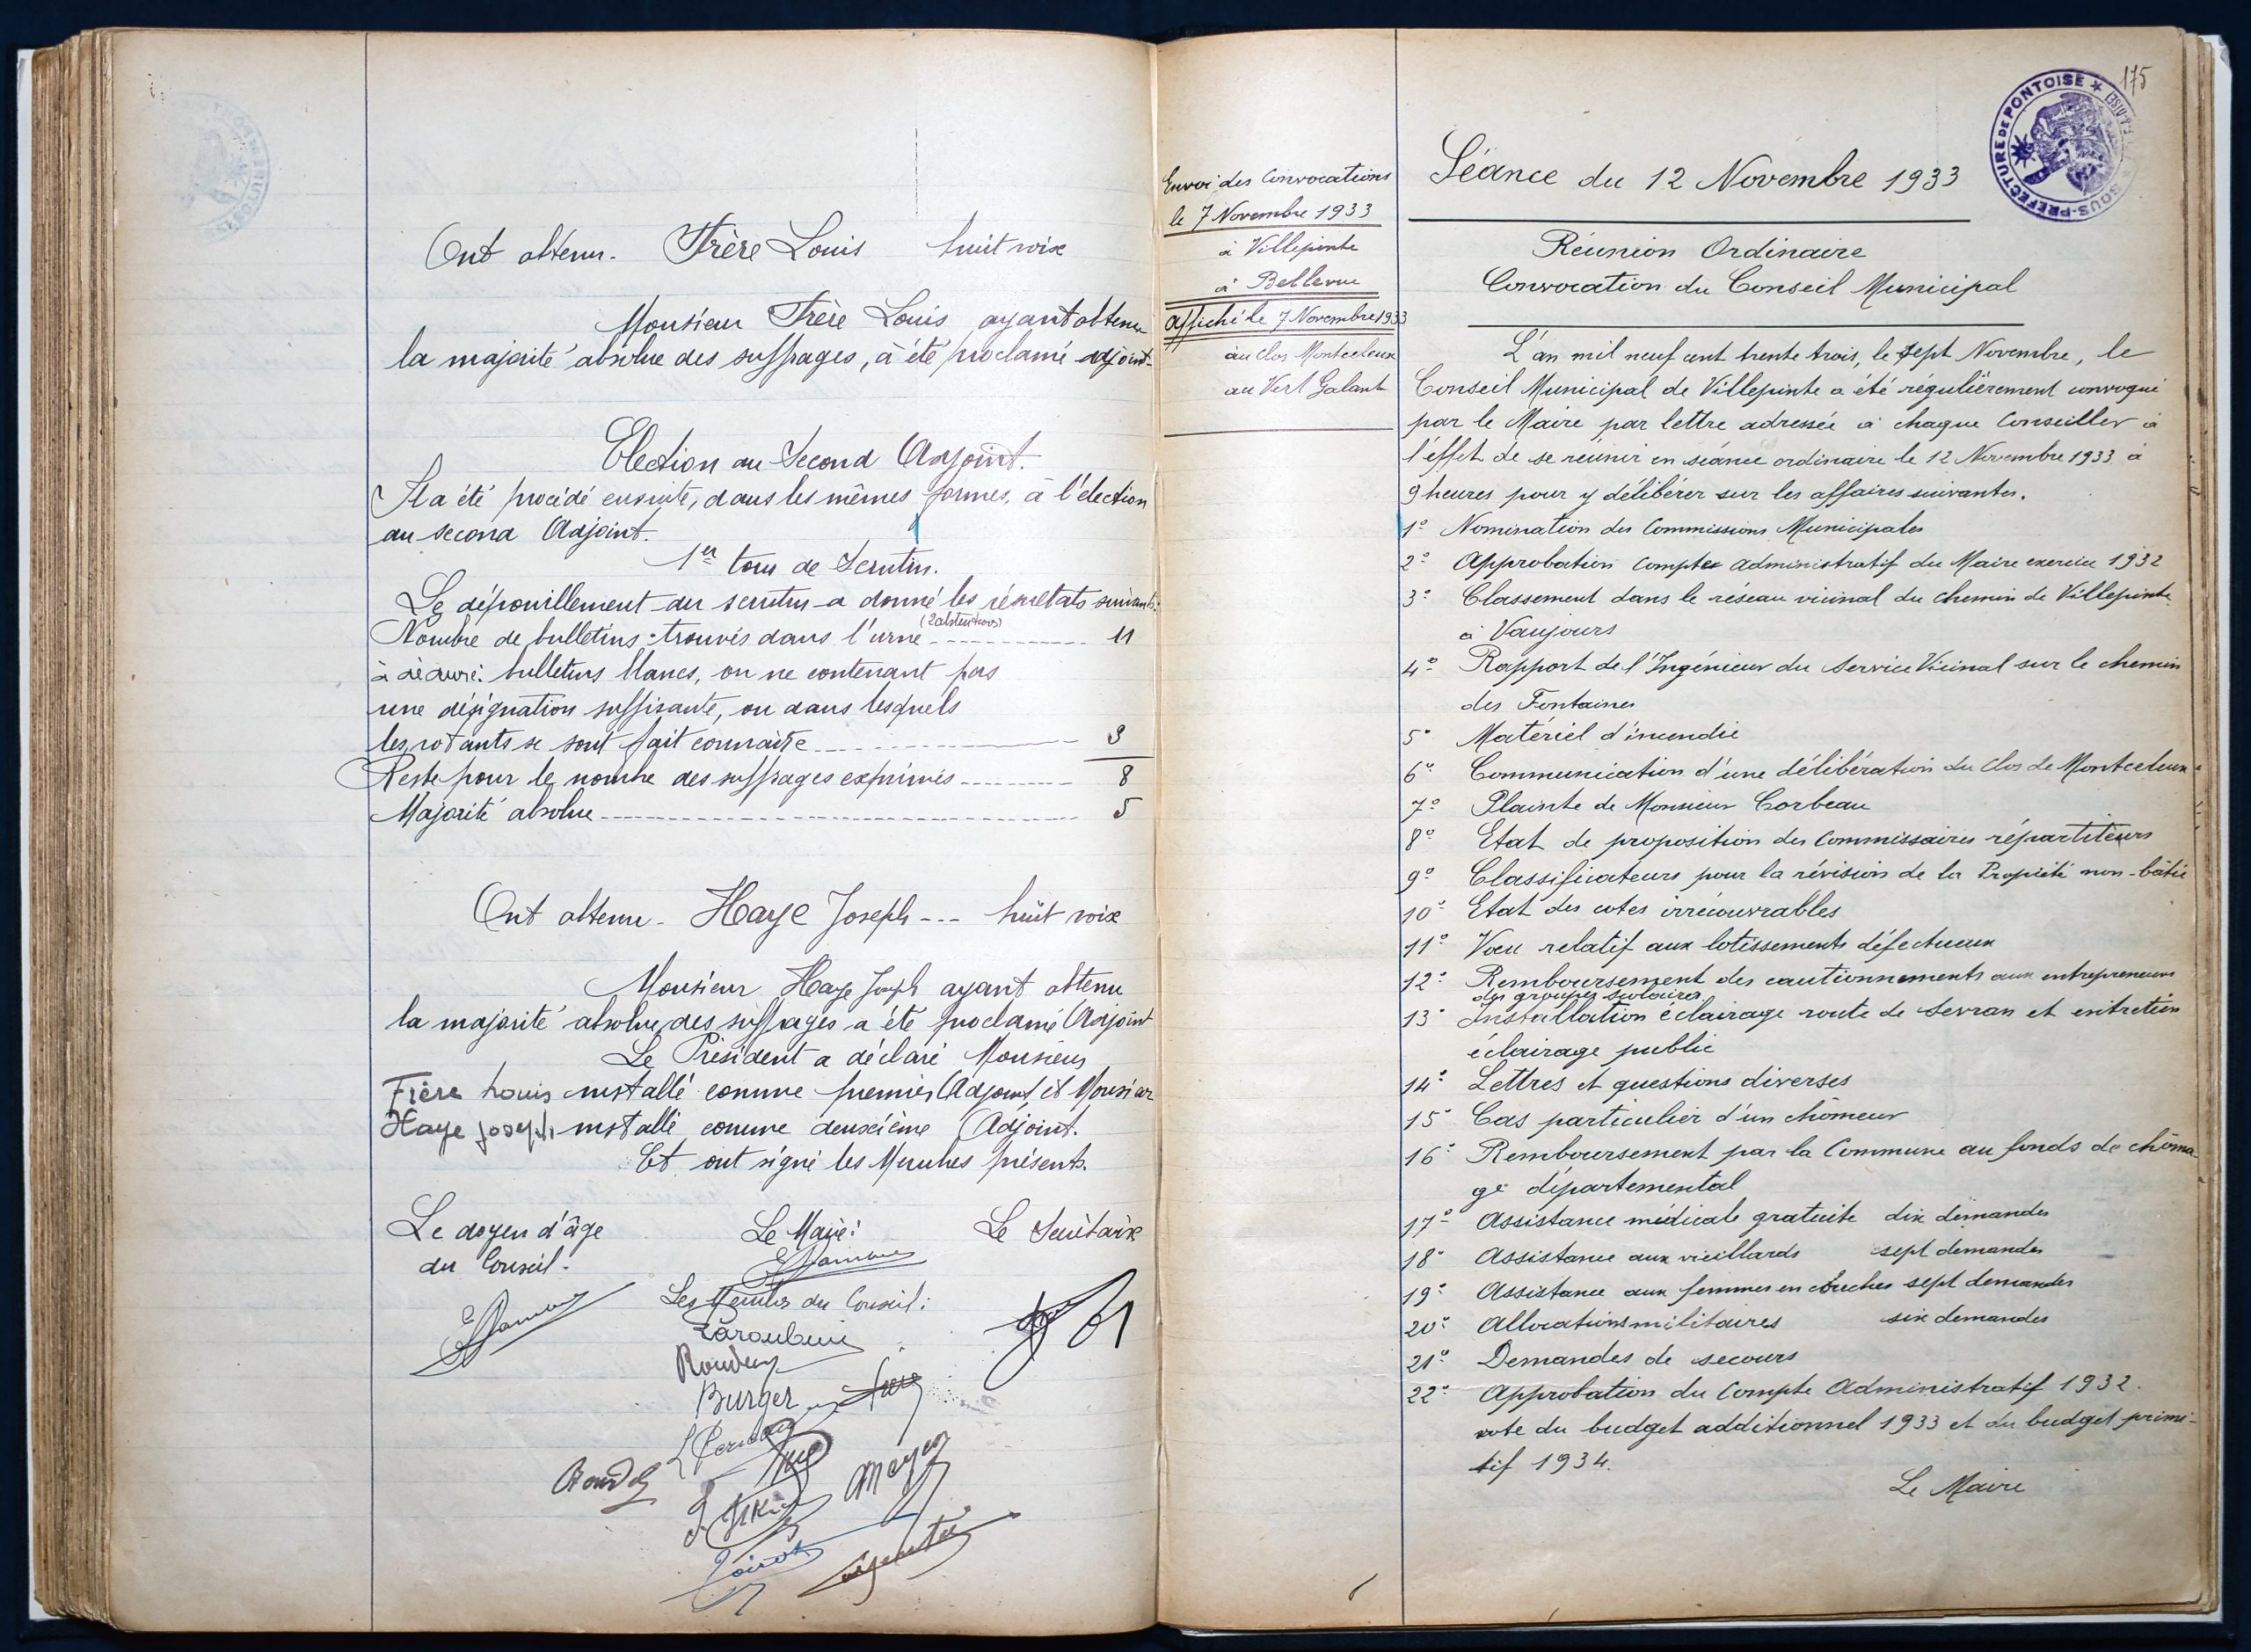 Ont obtenu - Frère Louis huit voix
Monsieur Frère Louis ayant obtenu
la majorité absolue des suffrages, à été proclamé adjoint -
Election au Second Adjoint.
Il a été procédé ensuite, dans les mêmes formes, à l'élection
au second Adjoint.
1er tour de Scrutin.
Le dépouillement du scrutin a donné les résultats suivants:
(2 abstentions)
Nombre de bulletins trouvés dans l'urne 11
à déduire: bulletins blancs, ou ne contenant pas
une désignation suffisante, ou dans lesquels
les votants se sont fait connaître 3
Reste pour le nombre des suffrages exprimés 8
Majorité absolue 5
Ont obtenu - Haye Joseph --- huit voix
Monsieur Haye Joseph ayant obtenu
la majorité absolue des suffrages a été proclamé Adjoint
Le Président a déclaré Monsieur
Frère Louis installé comme premier Adjoint et Monsieur
Haye Joseph installé comme deuxième Adjoint.
Et ont signé les Membres présents.
Le doyen d'âge
du Conseil.
Le Maire:
Le Secrétaire
Les Membres du Conseil:
Burger
Mayer
Envoi des Convocations
le 7 Novembre 1933
à Villepinte
à Bellevue
Affiché le 7 Novembre 1933
au clos Montceleux
au Vert Galant
175
SOUS-PRÉFECTURE DE PONTOISE
Séance du 12 Novembre 1933
Réunion Ordinaire
Convocation du Conseil Municipal
L'an mil neuf cent trente trois, le sept Novembre, le
Conseil Municipal de Villepinte a été régulièrement convoqué
par le Maire par lettre adressée à chaque Conseiller à
l'effet de se réunir en séance ordinaire le 12 Novembre 1933 à
9 heures pour y délibérer sur les affaires suivantes.
1° Nomination des Commissions Municipales
2° Approbation compte administratif du Maire exercice 1932
3° Classement dans le réseau vicinal du chemin de Villepinte
à Vaujours
4° Rapport de l'Ingénieur du Service Vicinal sur le chemin
des Fontaines
5° Matériel d'incendie
6° Communication d'une délibération du Clos de Montceleux
7° Plainte de Monsieur Corbeau
8° Etat de proposition des Commissaires répartiteurs
9° Classificateurs pour la révision de la Propriété non-bâtie
10° Etat des cotes irrécouvrables
11° Voeu relatif aux lotissements défectueux
12° Remboursement des cautionnements aux entrepreneurs
des groupes scolaires.
13° Installation éclairage route de Sevran et entretien
éclairage public
14° Lettres et questions diverses
15° Cas particulier d'un chômeur
16° Remboursement par la Commune au fonds de chôma-
ge départemental
17° Assistance médicale gratuite dix demandes
18° Assistance aux vieillards sept demandes
19° Assistance aux femmes en couches sept demandes
20° Allocations militaires six demandes
21° Demandes de secours
22° Approbation du Compte Administratif 1932.
vote du budget additionnel 1933 et du budget primi-
tif 1934.
Le Maire